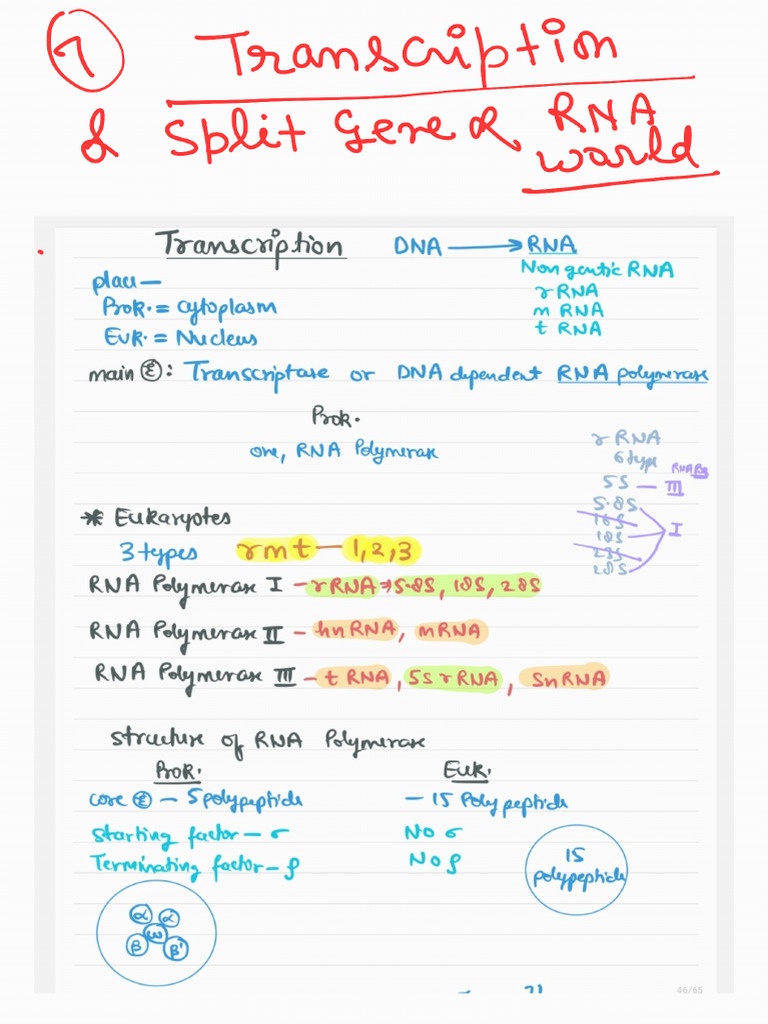 7 Transcription
& Split Gene & RNA world
Transcription DNA → RNA
Non gentic RNA
rRNA
mRNA
tRNA
place —
Prok. = Cytoplasm
Euk. = Nucleus
main Ⓔ: Transcriptase or DNA dependent RNA polymerase
Prok.
one, RNA Polymerase
rRNA
6 type
5S — III RNA
5.8S
16S
18S
23S
28S
I
* Eukaryotes
3 types rmt — 1,2,3
RNA Polymerase I – rRNA → 5.8S, 18S, 28S
RNA Polymerase II – hnRNA, mRNA
RNA Polymerase III – tRNA, 5s rRNA, SnRNA
Structure of RNA Polymerase
Prok. Euk.
core Ⓔ – 5 polypeptide – 15 Polypeptide
Starting factor – σ No σ
Terminating factor – ρ No ρ
15 polypeptide
α α
ω
β β'
46/65